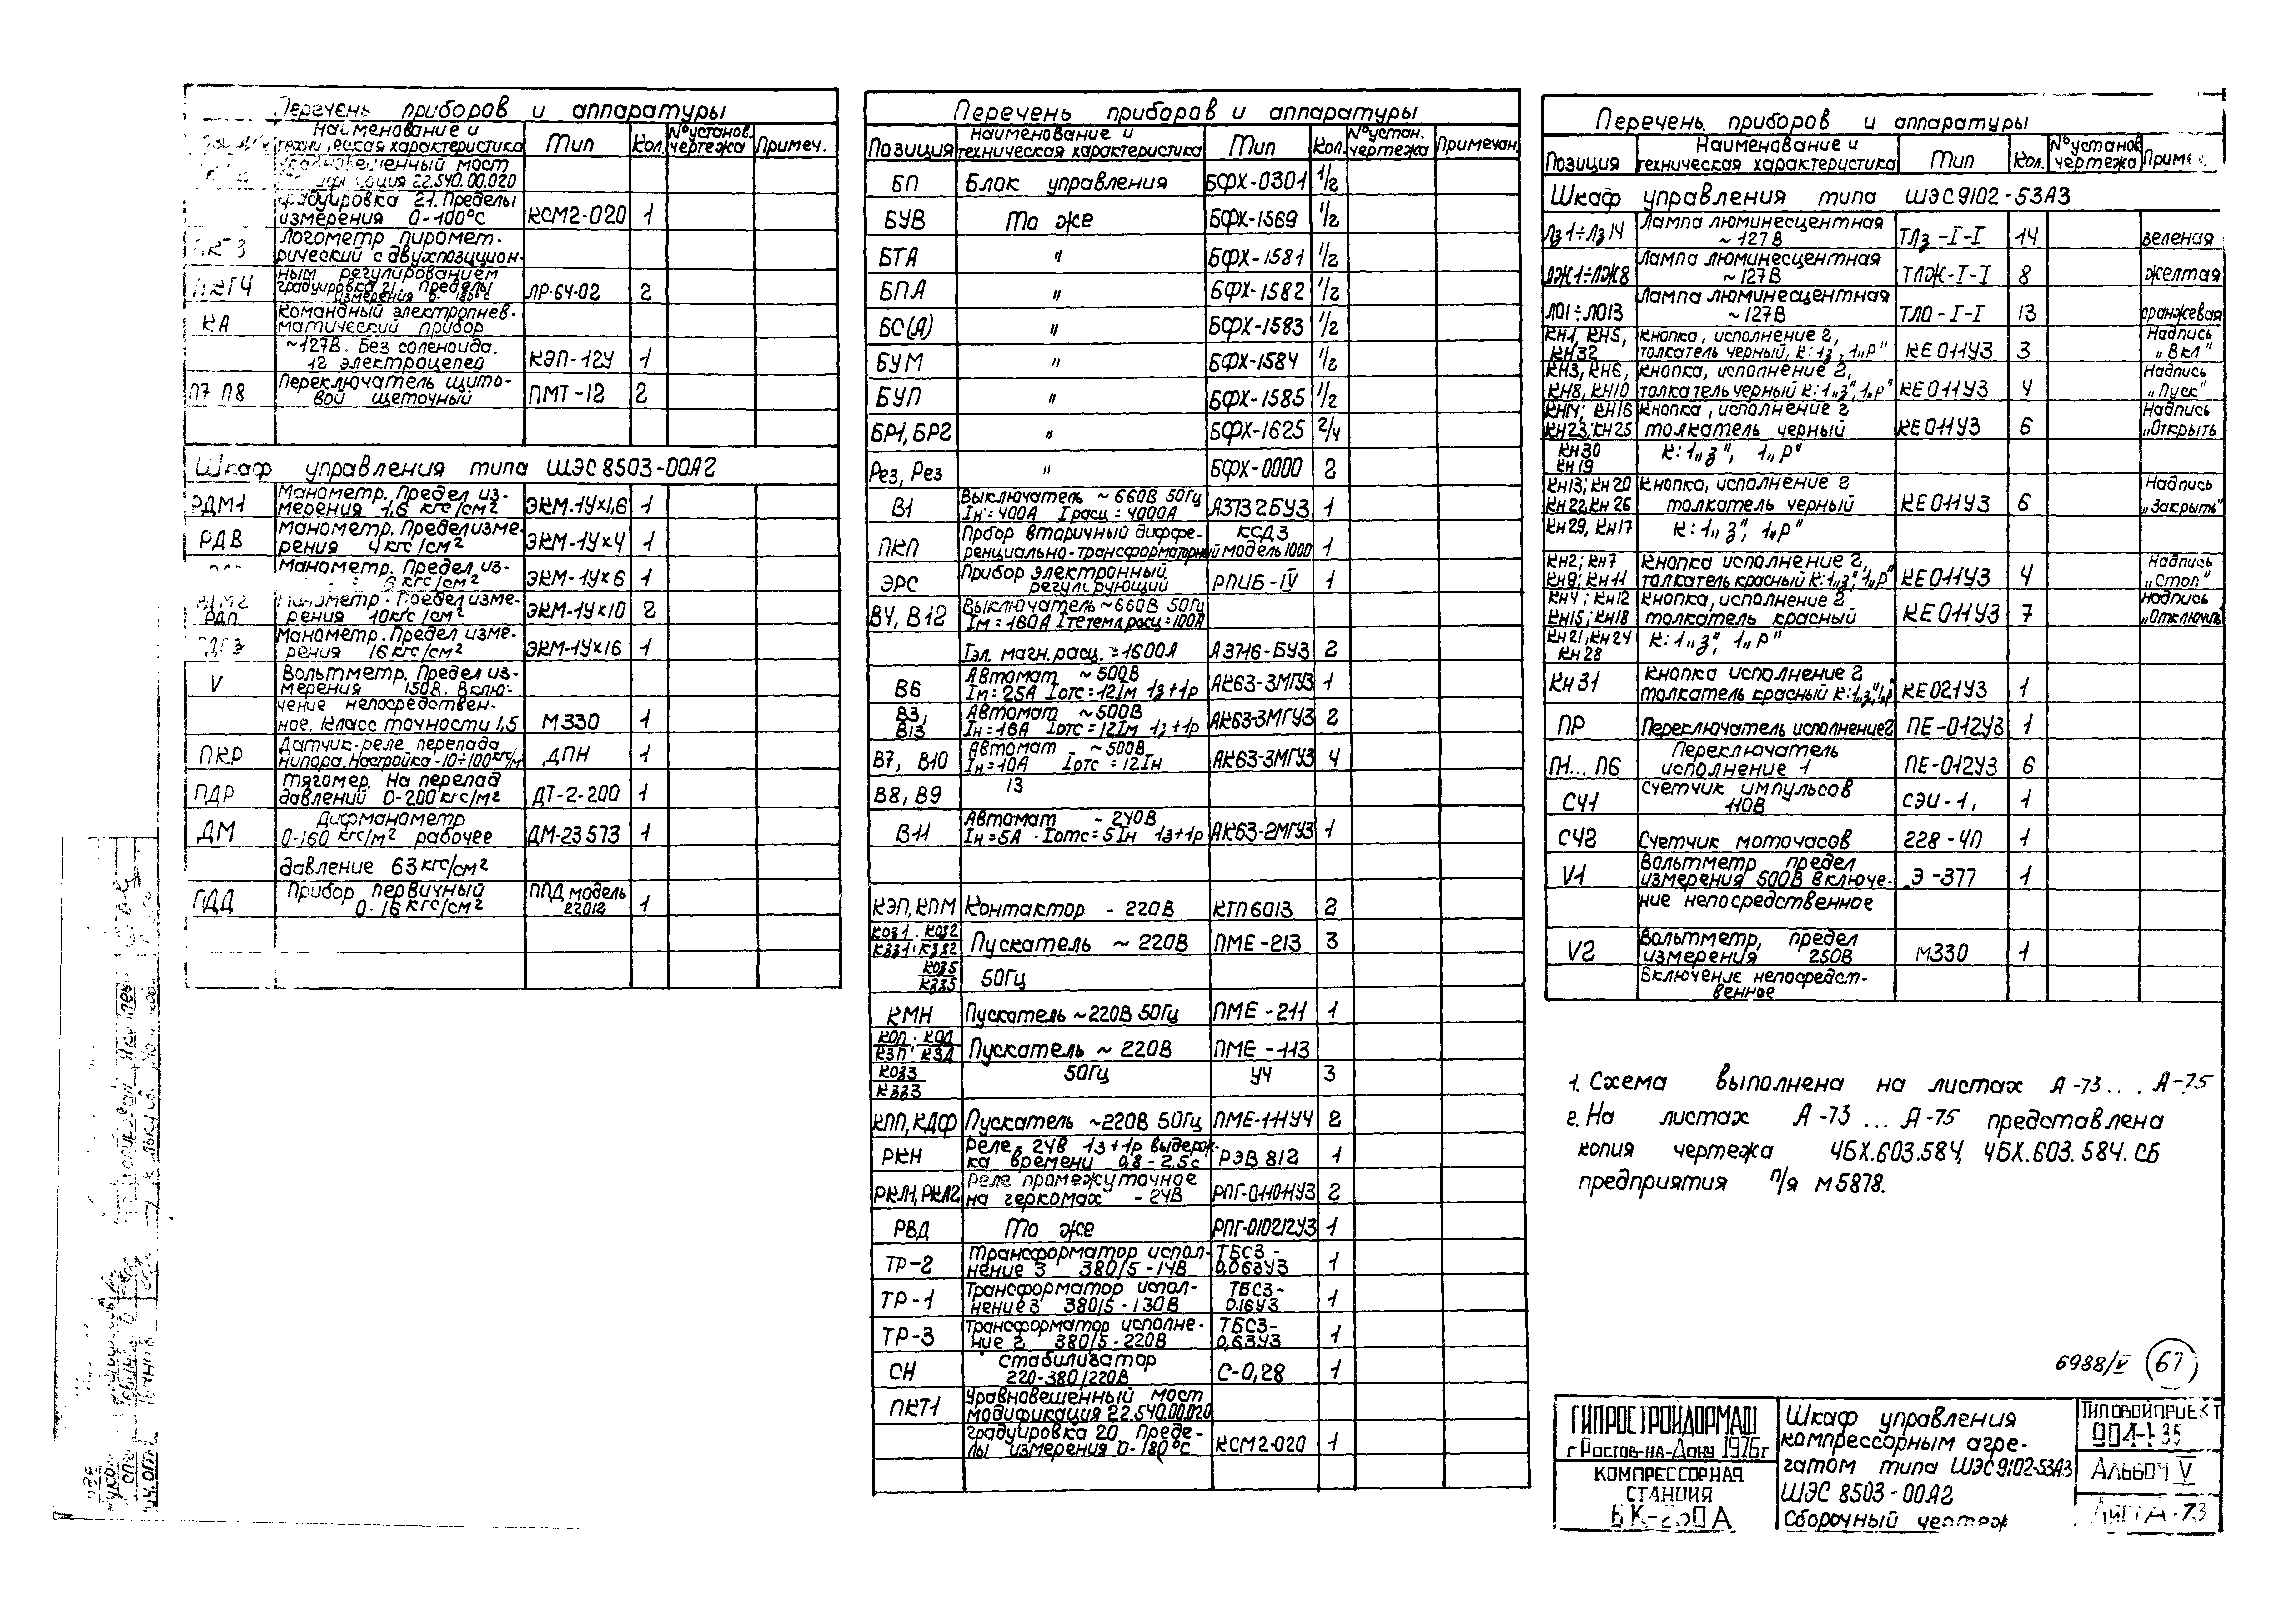 Перечень приборов и аппаратуры
Наименование и техническая характеристика Тип Кол. №установ. чертежа Примеч.
мост
22.540.00.020
градуировка 21. Пределы
измерения 0-100°С КСМ2-020 1
Логометр пиромет-
рический с двухпозицион-
ным регулированием
градуировка 21. пределы
измерения 0- 180°С ЛР-64-02 2
КА Командный электропнев-
матический прибор
~127В. Без соленоида.
12 электроцепей КЭП-12У 1
П7 П8 Переключатель щито-
вой щеточный ПМТ-12 2
Шкаф управления типа ШЭС8503-00А2
РДМ1 Манометр. Предел из-
мерения 1,6 кгс/см2 ЭКМ-1Ух1,6 1
РДВ Манометр. Предел изме-
рения 4кгс/см2 ЭКМ-1Ух4 1
Манометр. Предел из-
6 кгс/см2 ЭКМ-1Ух6 1
РДМ2 Манометр. Предел изме-
РДП рения 10кгс/см2 ЭКМ-1Ух10 2
Манометр. Предел изме-
рения 16кгс/см2 ЭКМ-1Ух16 1
V Вольтметр. Предел из-
мерения 150В. Вклю-
чение непосредствен-
ное. Класс точности 1,5 М330 1
ПКР Датчик-реле перепада
напора. Настройка -10÷100кгс/м2 ДПН 1
ПДР Тягомер. На перепад
давлений 0-200 кгс/м2 ДТ-2-200 1
ДМ Дифманометр
0-160 кгс/м2 рабочее ДМ-23573 1
давление 63кгс/см2
ПДД Прибор первичный ППД модель
0-16кгс/см2 22012 1
Перечень приборов и аппаратуры
Позиция Наименование и техническая характеристика Тип Кол. №устан. чертежа Примечан.
БП Блок управления БФХ-0301 1/2
БУВ То же БФХ-1569 1/2
БТА " БФХ-1581 1/2
БПА " БФХ-1582 1/2
БС(А) " БФХ-1583 1/2
БУМ " БФХ-1584 1/2
БУП " БФХ-1585 1/2
БР1, БР2 " БФХ-1625 2/4
Рез, Рез " БФХ-0000 2
В1 Выключатель ~ 660В 50Гц
Iн=400А Iрасц=4000А А3732БУ3 1
ПКП Прбор вторичный диффе- КСД3
ренциально-трансформаторный модель1000 1
ЭРС Прибор электронный
регулрующий РПИБ-IV 1
В4, В12 Выключатель ~660В 50Гц
Iм=160А Iтетемл.расц=100А
Iэл. магн. расц.=1600А А3716-БУ3 2
В6 Автомат ~500В
Iм=25А Iотс=12Iм 1з+1р АК63-3МГУ3 1
В3, В13 Автомат ~500В
Iн=16А Iотс=12Iм 1з+1р АК63-3МГУ3 2
В7, В10 Автомат ~500В
Iн=10А Iотс=12Iн АК63-3МГУ3 4
В8, В9 13
В11 Автомат - 240В
Iн=5А Iотс=5Iн 1з+1р АК63-2МГУ3 1
КЭП, КПМ Контактор - 220В КТП6013 2
КОЗ1 КОЗ2
КЗЗ1, КЗЗ2 Пускатель ~ 220В ПМЕ-213 3
КОЗ5
КЗЗ5 50Гц
КМН Пускатель ~220В 50Гц ПМЕ-211 1
КОП КОД
КЗП, КЗД Пускатель ~ 220В ПМЕ-113
КОЗЗ
КЗЗЗ 50Гц У4 3
КПП, КДФ Пускатель ~220В 50Гц ПМЕ-111У4 2
РКН Реле, 24В 1з+1р выдерж-
ка времени 0,8-2,5с РЭВ 812 1
РКЛ1, РКЛ2 Реле промежуточное
на герконах - 24В РПГ-011011У3 2
РВД То же РПГ-010212У3 1
ТР-2 Трансформатор испол- ТБС3-
нение 3 380/5-14В 0,063У3 1
ТР-1 Трансформатор испол- ТБС3-
нение3 380/5-130В 0.16У3 1
ТР-3 Трансформатор исполне- ТБС3-
ние 2 380/5-220В 0,63У3 1
СН Стабилизатор
220-380/220В С-0,28 1
ПКТ1 Уравновешенный мост
модификация 22.540.00.020
градуировка 20. Преде-
лы измерения 0-180°С КСМ2-020 1
Перечень приборов и аппаратуры
Позиция Наименование и техническая характеристика Тип Кол. №установ чертежа Примеч.
Шкаф управления типа ШЭС9102-53А3
Лз1÷Лз14 Лампа люминесцентная
~127В ТЛз-I-I 14 зеленая
ЛЖ1÷ЛЖ8 Лампа люминесцентная
~127В ТЛЖ-I-I 8 желтая
ЛО1÷ЛО13 Лампа люминесцентная
~127В ТЛО-I-I 13 оранжевая
КН1, КН5, Кнопка, исполнение 2, Надпись
КН32 толкатель черный, К:1з, 1„р" КЕ011У3 3 „Вкл"
КН3, КН6, Кнопка, исполнение 2, Надпись
КН8, КН10 толкатель черный К:1„з", 1„р" КЕ011У3 4 „Пуск"
КН14; КН16 Кнопка, исполнение 2 Надпись
КН23; КН25 толкатель черный КЕ011У3 6 „Открыть
КН30 К:1„з", 1„Р"
КН19
КН13; КН20 Кнопка, исполнение 2 Надпись
КН22 КН26 толкатель черный КЕ011У3 6 „Закрыть"
КН29, КН17 К:1„з", 1„р"
КН2; КН7 Кнопка исполнение 2, Надпись
КН9; КН11 толкатель красный К:1„з", 1„р" КЕ011У3 4 „Стоп"
КН4; КН12 Кнопка, исполнение 2 Надпись
КН15; КН18 толкатель красный КЕ011У3 7 „Отключить
КН21, КН24 К:1„з", 1„р"
КН28
КН31 Кнопка исполнение 2
толкатель красный К:1„з", 1„р" КЕ021У3 1
ПР Переключатель исполнение2 ПЕ-012У3 1
П1... П6 Переключатель
исполнение 1 ПЕ-012У3 6
СЧ1 Счетчик импульсов
110В СЭИ-1, 1
СЧ2 Счетчик моточасов 228-ЧП 1
V1 Вольтметр предел
измерения 500В включе- Э-377 1
ние непосредственное
V2 Вольтметр, предел
измерения 250В М330 1
Включение непосредст-
венное
1. Схема выполнена на листах А-73... А-75
2. На листах А-73 ... А-75 представлена
копия чертежа 4БХ.603.584, 4БХ.603.584.СБ
предприятия п/я М5878.
6988/V 67
ГИПРОСТРОЙДОРМАШ
г Ростов-на-Дону 1976г
КОМПРЕССОРНАЯ
СТАНЦИЯ
Шкаф управления
компрессорным агре-
гатом типа ШЭС9102-53А3
ШЭС 8503-00А2
Сборочный чертеж
ТИПОВОЙ ПРОЕКТ
904-1-35
Альбом V
Лист А-73